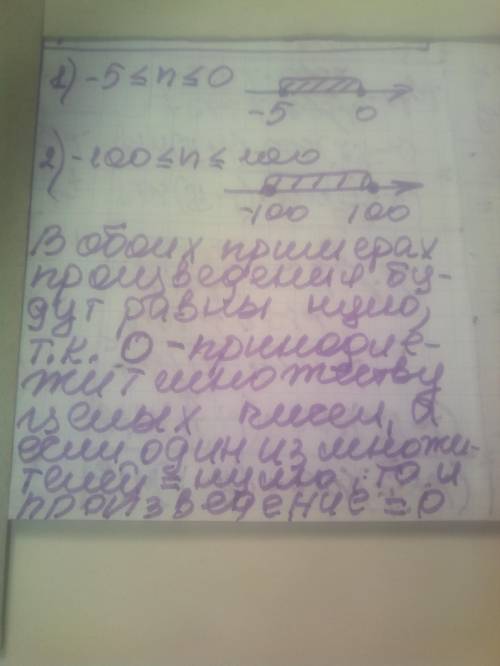 1) -5 ≤ n ≤ 0
-5 0
2) -100 ≤ n ≤ 100
-100 100
В обоих примерах
произведения бу-
дут равны нулю,
т.к. 0 - принадле-
жит множеству
целых чисел, а
если один из множи-
телей = нулю, то и
произведение = 0